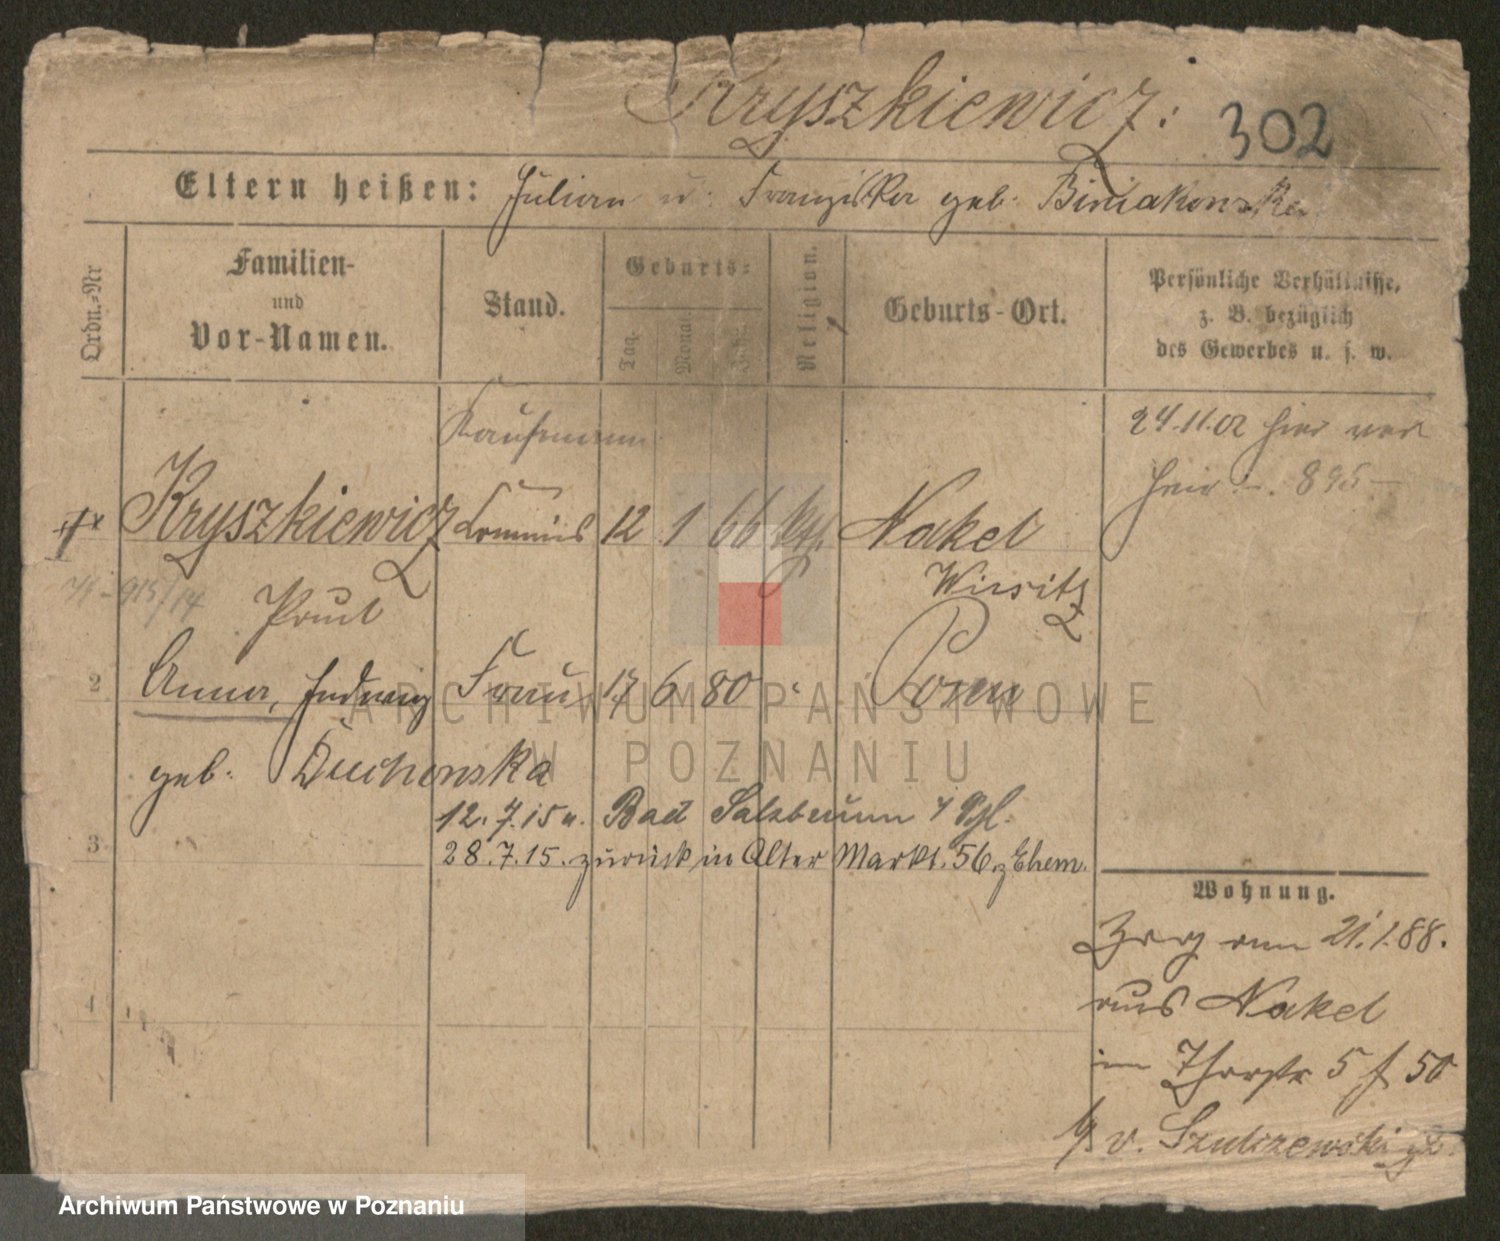 Kryszkiewicz: 302
Eltern heißen: Julian u. Franziska geb. Biniakowska
Ordn.-Nr
Familien-
und
Vor-Namen.
Stand.
Geburts-
Tag.
Monat.
Jahr.
Religion.
Geburts-Ort.
Persönliche Verhältnisse,
z. B. bezüglich
des Gewerbes u. s. w.
Kaufmann
24.11.02 hier ver
heir. 895
1 Kryszkiewicz Commis 12 1 66 kth. Nakel
Wirsitz
915/14 Paul
2 Anna, Hedwig Frau 17 6 80 Posen
geb. Duchowska
12.7.15 n. Bad Salzbrunn
3 28.7.15. zurück in Alter Markt. 56. z Ehem.
Wohnung.
Zuzg am 21.1.88.
aus Nakel
in Thorstr 5 f 50
b/ v. Szulczewski
4
ARCHIWUM PAŃSTWOWE
W POZNANIU
Archiwum Państwowe w Poznaniu